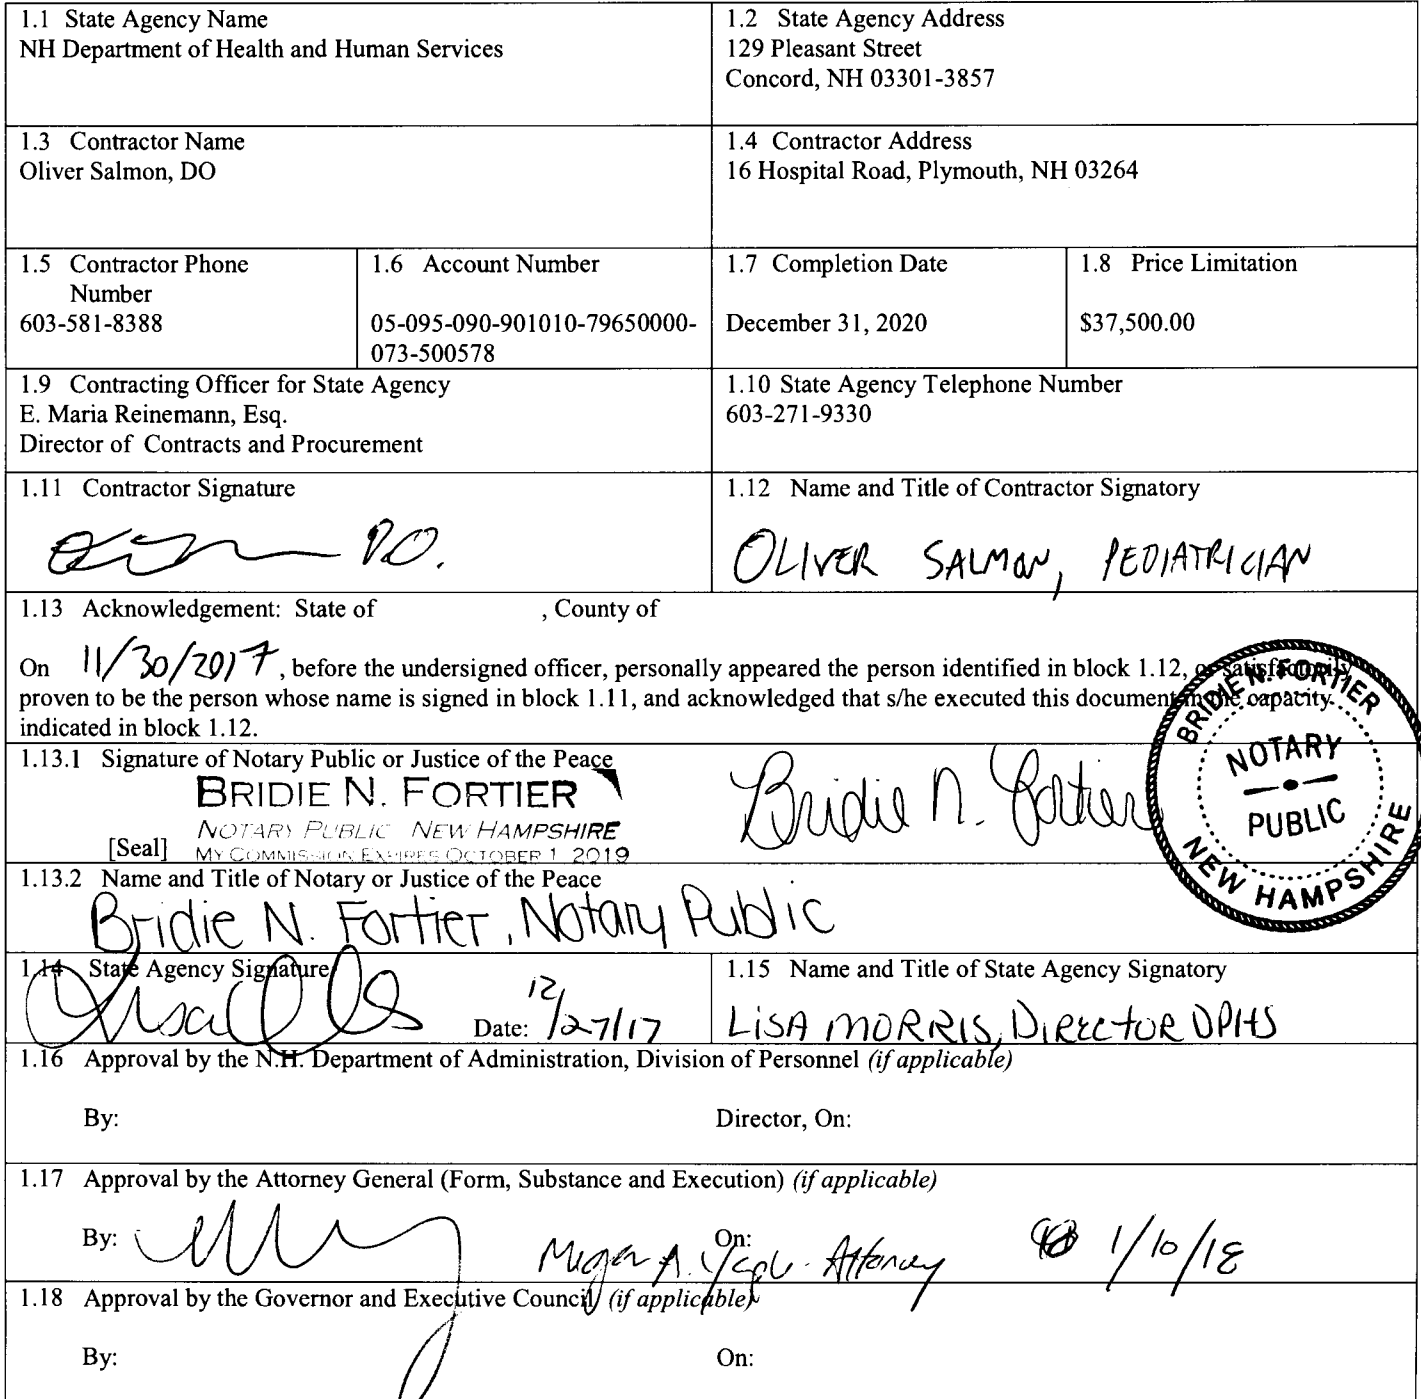 1.1 State Agency Name
NH Department of Health and Human Services
1.2 State Agency Address
129 Pleasant Street
Concord, NH 03301-3857
1.3 Contractor Name
Oliver Salmon, DO
1.4 Contractor Address
16 Hospital Road, Plymouth, NH 03264
1.5 Contractor Phone
Number
603-581-8388
1.6 Account Number
05-095-090-901010-79650000-
073-500578
1.7 Completion Date
December 31, 2020
1.8 Price Limitation
$37,500.00
1.9 Contracting Officer for State Agency
E. Maria Reinemann, Esq.
Director of Contracts and Procurement
1.10 State Agency Telephone Number
603-271-9330
1.11 Contractor Signature
D.O.
1.12 Name and Title of Contractor Signatory
OLIVER SALMON, PEDIATRICIAN
1.13 Acknowledgement: State of , County of
On 11/30/2017, before the undersigned officer, personally appeared the person identified in block 1.12, or satisfactorily
proven to be the person whose name is signed in block 1.11, and acknowledged that s/he executed this document in the capacity
indicated in block 1.12.
1.13.1 Signature of Notary Public or Justice of the Peace
BRIDIE N. FORTIER
NOTARY PUBLIC NEW HAMPSHIRE
[Seal] MY COMMISSION EXPIRES OCTOBER 1, 2019
Bridie N. Fortier
BRIDIE N. FORTIER
NOTARY
PUBLIC
NEW HAMPSHIRE
1.13.2 Name and Title of Notary or Justice of the Peace
Bridie N. Fortier, Notary Public
1.14 State Agency Signature
Date: 12/27/17
1.15 Name and Title of State Agency Signatory
LISA MORRIS, DIRECTOR DPHS
1.16 Approval by the N.H. Department of Administration, Division of Personnel (if applicable)
By: Director, On:
1.17 Approval by the Attorney General (Form, Substance and Execution) (if applicable)
By: On:
Megan A. - Attorney 1/10/18
1.18 Approval by the Governor and Executive Council (if applicable)
By: On: